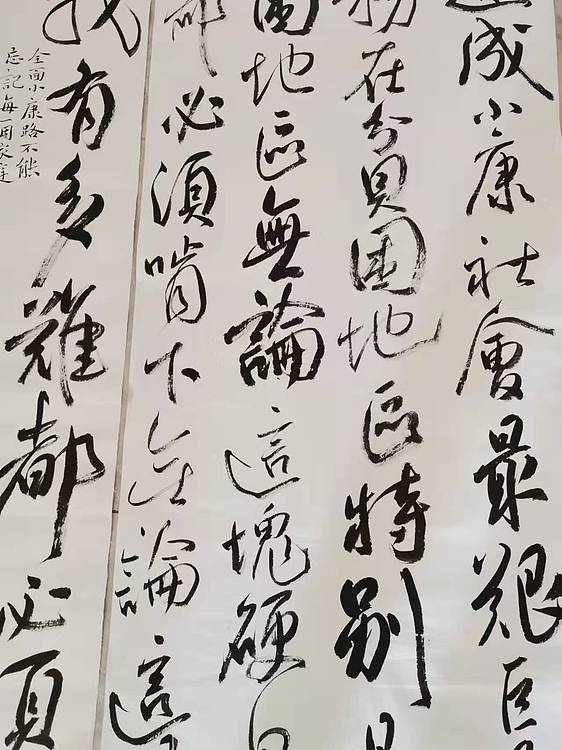 成小康社會最艱巨
務在貧困地區特別是
困地區無論這塊硬
都必須啃下無論這
我有多難都必須
全面小康路不能
忘記每一個家庭